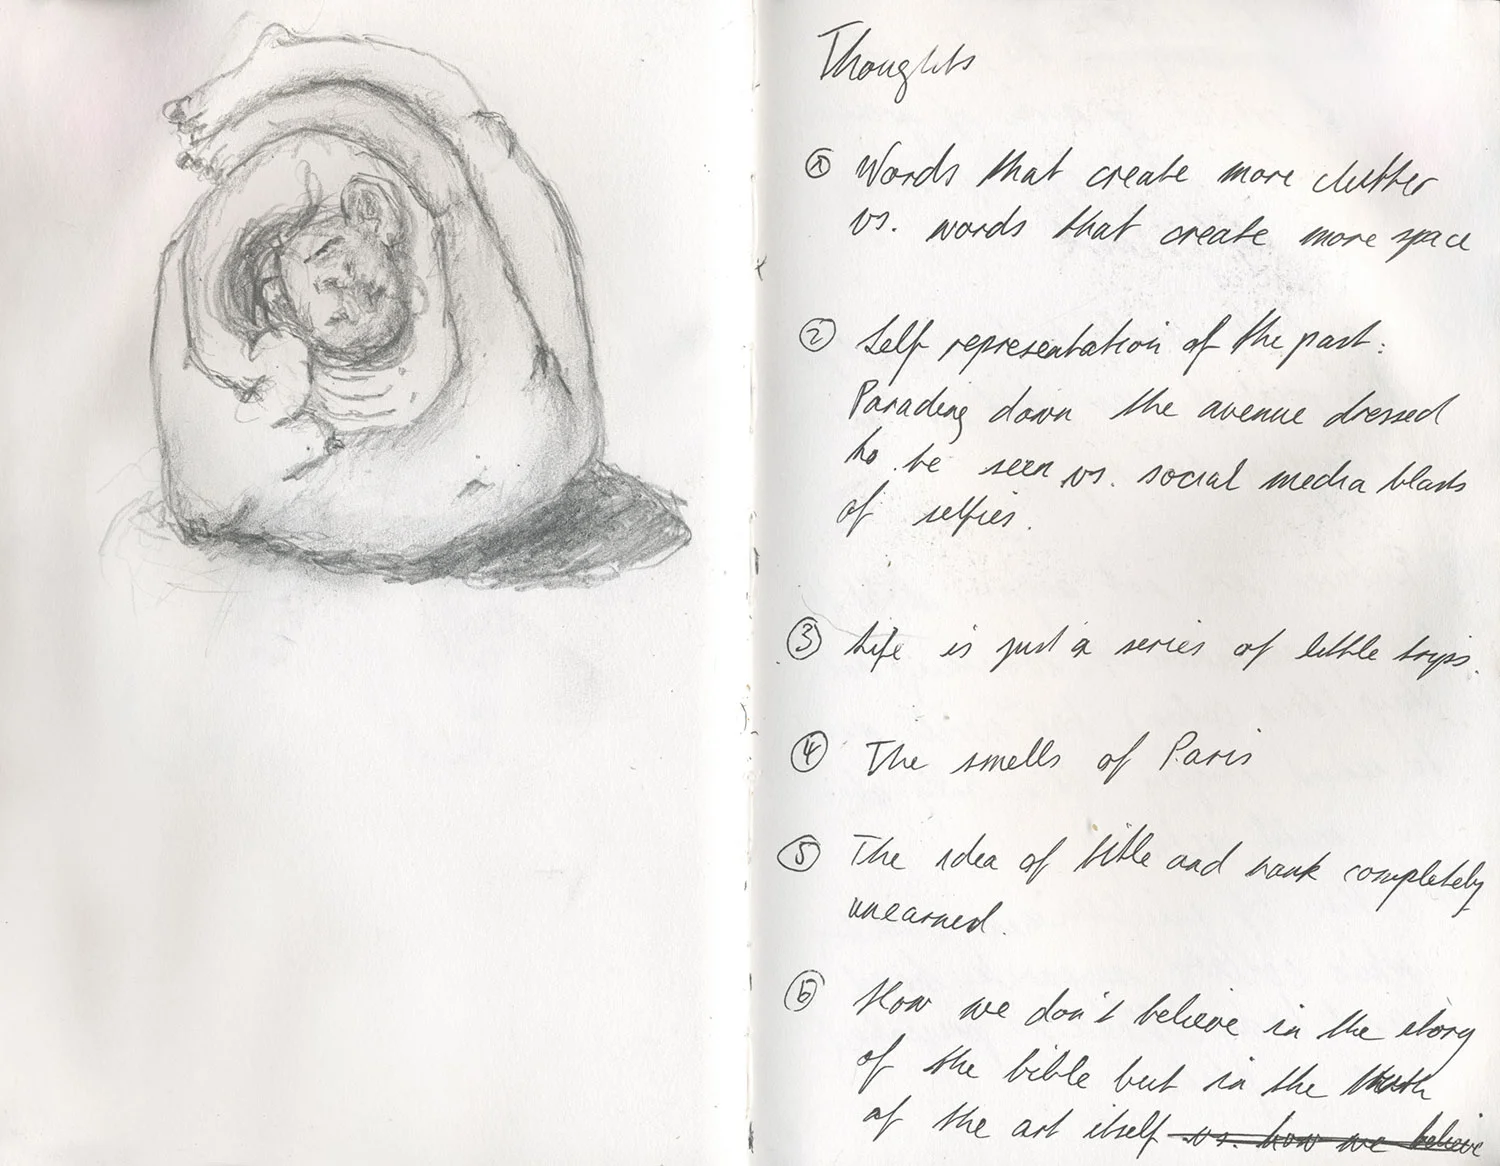 Thoughts
① Words that create more clutter
vs. words that create more space
② Self representation of the past:
Parading down the avenue dressed
to be seen vs. social media blasts
of selfies.
③ Life is just a series of little trips.
④ The smells of Paris
⑤ The idea of title and rank completely
unearned.
⑥ How we don't believe in the story
of the bible but in the truth
of the art itself vs. how we believe